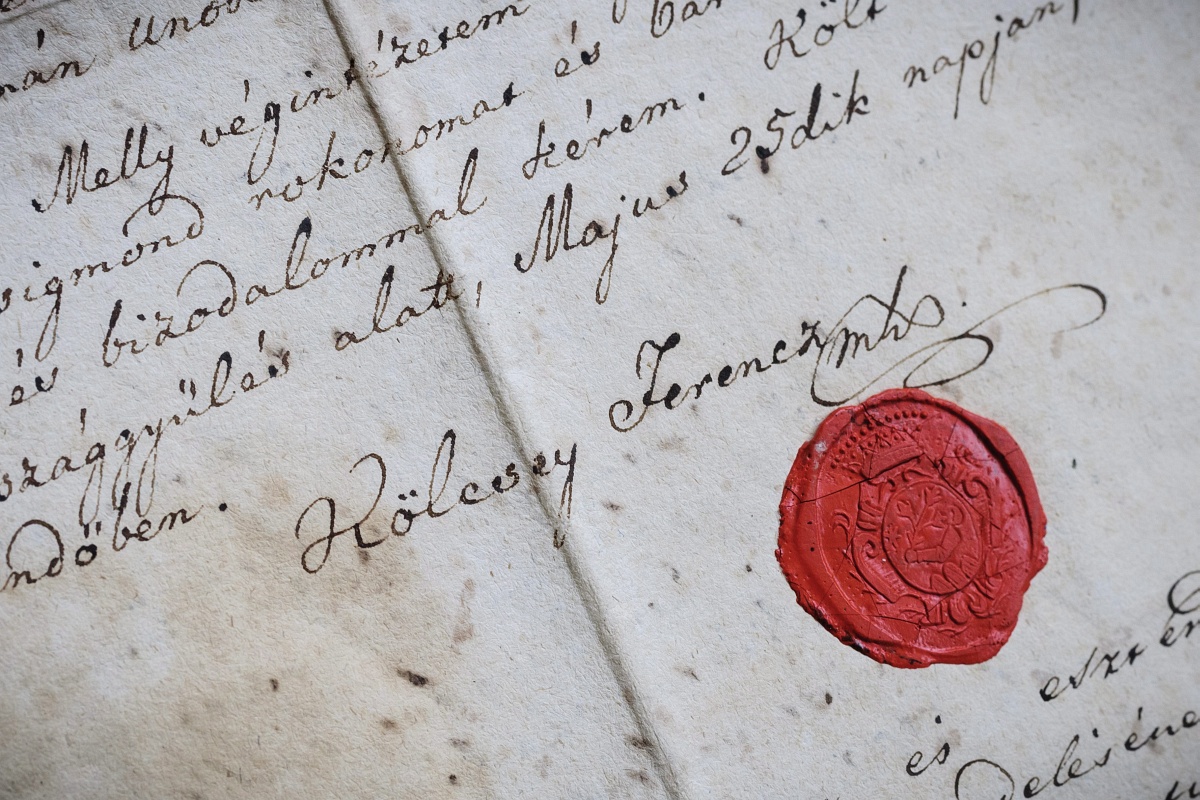 mán unok
Melly végintézetem
sigmond rokonomat és bar
és bizodalommal kérem. Költ
szággyűlés alatt, Majus 25dik napján,
ndőben.
Kölcsey Ferencz mk.
és eszt
delésének